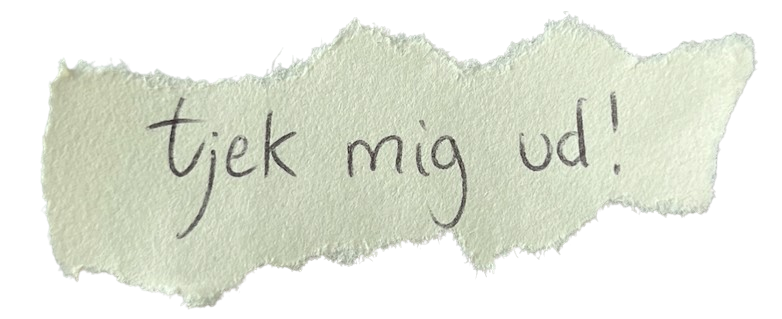 tjek mig ud!